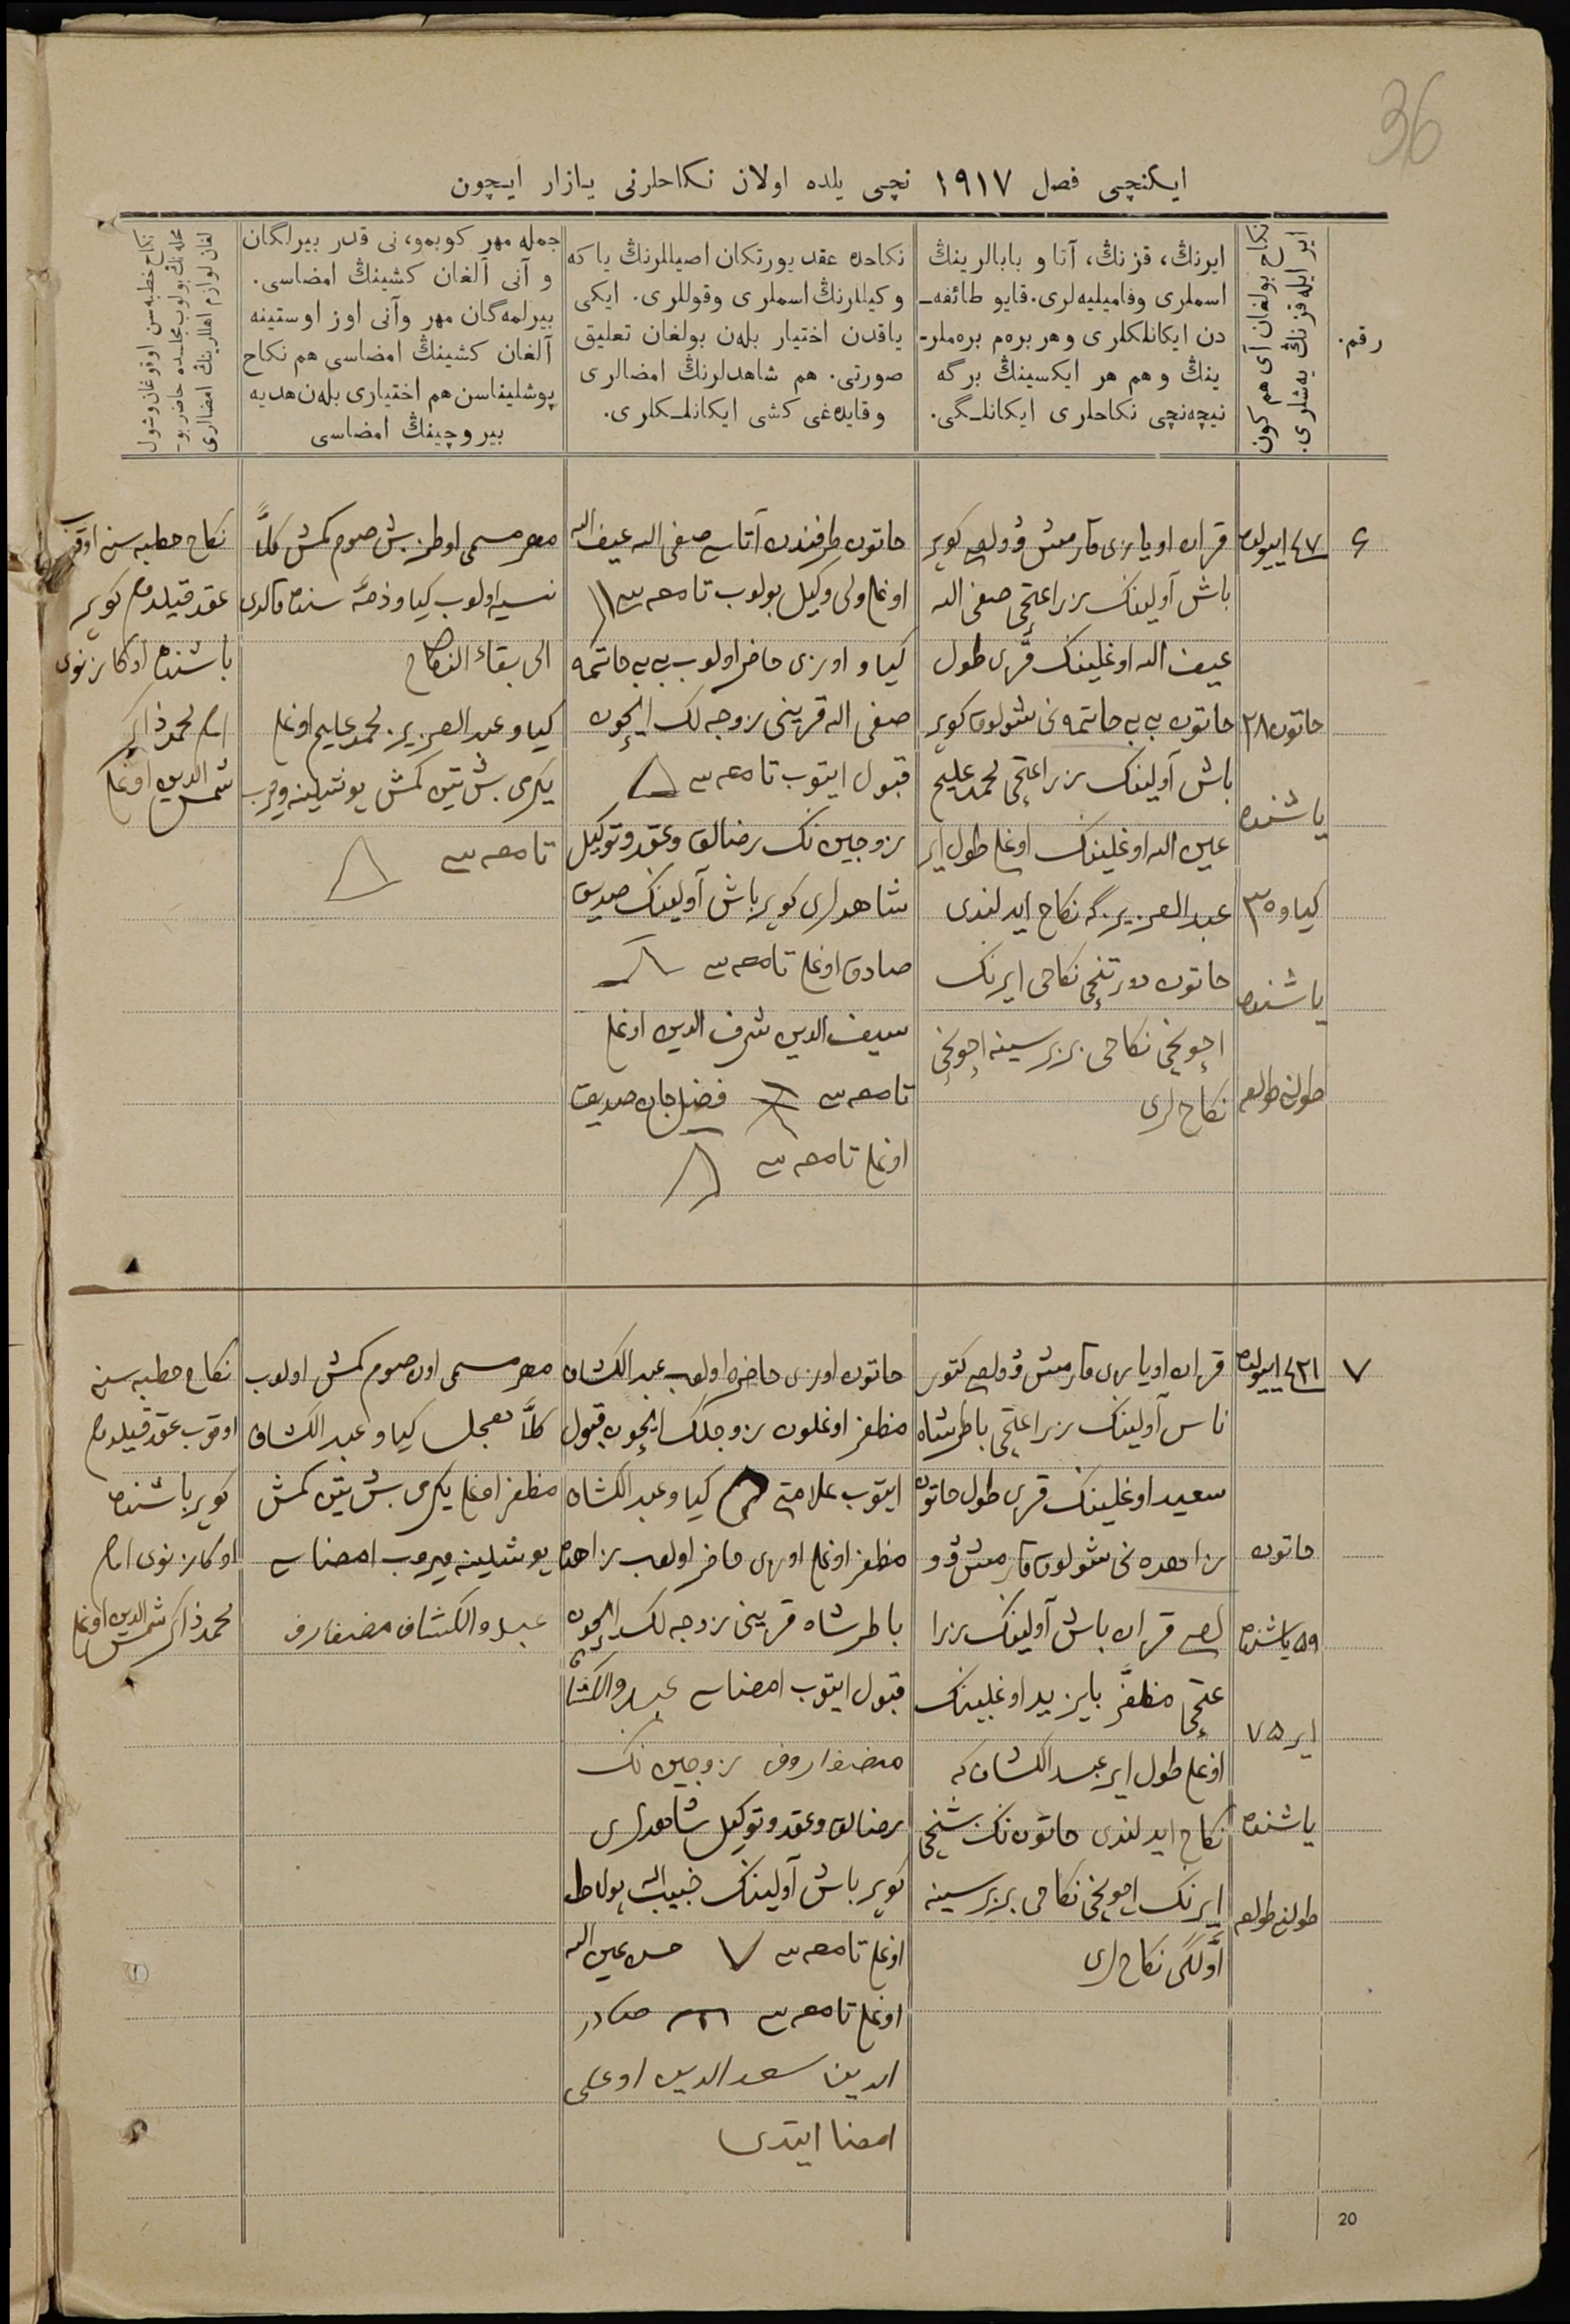 36
ایكنچی فصل ١٩١٧ نچی یلده اولان نكاحلرنی یازار ایچون
رقم.
نكاح بولغان آی هم كون
ایر ایله قزنڭ یه‌شلری.
ایرنڭ، قزنڭ، آتا و بابالرینڭ
اسملری وفامیلیه‌لری. قایو طائفه‌ـ
دن ایكانلكلری وهر بره‌م بره‌ملرـ
ینڭ و هم هر ایكسینڭ برگه
نیچه‌نچی نكاحلری ایكانلـگی.
نكاحده عقد یورتكان اصیللرنڭ یا كه
وكیللرنڭ اسملری وقوللری. ایكی
یاقدن اختیار بله‌ن بولغان تعلیق
صورتی. هم شاهدلرنڭ امضالری
وقایده‌غی كشی ایكانلـكلری.
جمله مهر كوبمو، نی قدر بیرلگان
و آنی آلغان كشینڭ امضاسی.
بیرلمه‌گان مهر وآنی اوز اوستینه
آلغان كشینڭ امضاسی هم نكاح
پوشلیناسن هم اختیاری بله‌ن هدیه
بیروچینڭ امضاسی
نكاح خطبه‌سن اوقوغان وشول
محله‌نڭ بولوب مجلسده حاضر بوـ
لغان لوازم اهللرینڭ امضالری
۶
٢٧ ایيولده
خاتون ٢٨
یاشنده
كیاو ٣٥
یاشنده
قزان اویازی قارمش وولصی كویر
باش آولینك زراعتچی صفی الله
عیف الله اوغلینك قزی طول
خاتون بی بی خاتمه نی شولوق كویر
باش آولینك زراعتچی محمد علیم
عین الله اوغلینك اوغلی طول ایر
عبد العزیزگه نكاح ایدلندی
خاتون دورتنچی نكاحی ایرنك
اچونچی نكاحی بربرسینه اچونچی
نكاح لری
خاتون طرفندن آتاسی صفی الله عیف الله
اوغلی ولی وكیل بولوب تامغه سی
كیاو اوزی حاضر اولوب بی بی خاتمه
صفی الله قزینی زوجه لك ایچون
قبول ایتوب تامغه سی
زوجین نك رضالق وعقد وتوكیل
شاهدلری كویر باش آولینك صدیق
صادق اوغلی تامغه سی
سیف الدین شرف الدین اوغلی
تامغه سی فضل جان صدیق
اوغلی تامغه سی
مهر مسمی اوطز بش صوم كمش كلاً
نسیه اولوب كیاو ذمه سنده قالدی
الی بقاء النكاح
كیاو عبد العزیز محمد علیم اوغلی
یكرمی بش تین كمش پوشلینه ویروب
تامغه سی
نكاح خطبه سن اوقوب
عقد قیلدم كویر
باشنده اوكازنوی
امام محمد ذاكر
شمس الدین اوغلی
٧
٢١ ایيولده
خاتون
٥٩ یاشنده
ایر ٧٥
یاشنده
قزان اویازی قارمش وولصی
آولینك زراعتچی باطرشاه
سعید اوغلینك قزی طول خاتون
زاهده نی شولوق قارمش وو
لصی قزان باش آولینك زرا
عتچی مظفر بایزید اوغلینك
اوغلی طول ایر عبد الكشاف كه
نكاح ایدلندی خاتون نك بشنچی
ایرنك اچونچی نكاحی بربرسینه
اولگی نكاح لری
خاتون اوزی حاضره اولوب عبد الكشاف
مظفر اوغلون زوجلك ایچون قبول
ایتوب علامتی كیاو عبد الكشاف
مظفر اوغلی اوزی حاضر اولوب زاهده
باطرشاه قزینی زوجه لك ایچون
قبول ایتوب امضاسی عبدوالكشاف
مضفاروف زوجین نك
رضالق وعقد وتوكیل شاهدلری
كویر باش آولینك حبیب الله پولاط
اوغلی تامغه سی حسن عین الله
اوغلی تامغه سی صادر
الدین سعد الدین اوغلی
امضا ایتدی
مهر مسمی اون صوم كمش اولوب
كلاً معجل كیاو عبد الكشاف
مظفر اوغلی یكرمی بش تین كمش
پوشلینه ویروب امضاسی
عبدوالكشاف مضفاروف
نكاح خطبه سنی
اوقوب عقد قیلدم
كویر باشنده
اوكازنوی امام
محمد ذاكر شمس الدین اوغلی
20